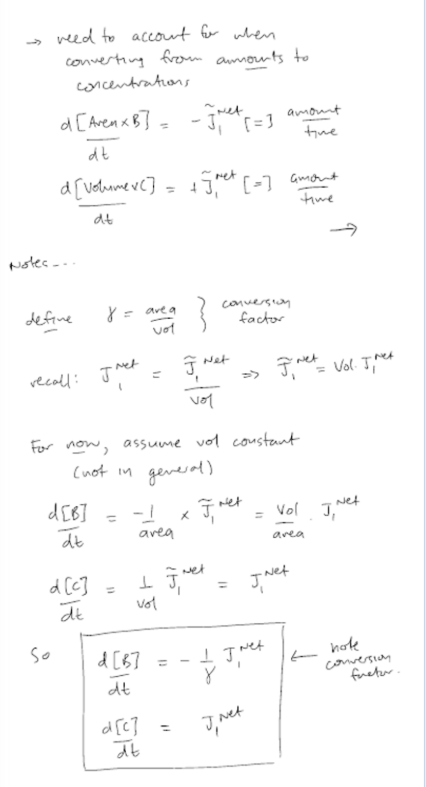 → need to account for when
converting from amounts to
concentrations
d[Area×B]/dt = - J̃₁ᴺᵉᵗ [=] amount/time
d[Volume×C]/dt = + J̃₁ᴺᵉᵗ [=] amount/time
→
Notes...
define γ = area/vol } conversion factor
recall: J₁ᴺᵉᵗ = J̃₁ᴺᵉᵗ/vol ⇒ J̃₁ᴺᵉᵗ = Vol. J₁ᴺᵉᵗ
For now, assume vol constant
(not in general)
d[B]/dt = -1/area × J̃₁ᴺᵉᵗ = Vol/area . J₁ᴺᵉᵗ
d[C]/dt = 1/vol J̃₁ᴺᵉᵗ = J₁ᴺᵉᵗ
So d[B]/dt = - 1/γ J₁ᴺᵉᵗ ← note conversion factor.
d[C]/dt = J₁ᴺᵉᵗ